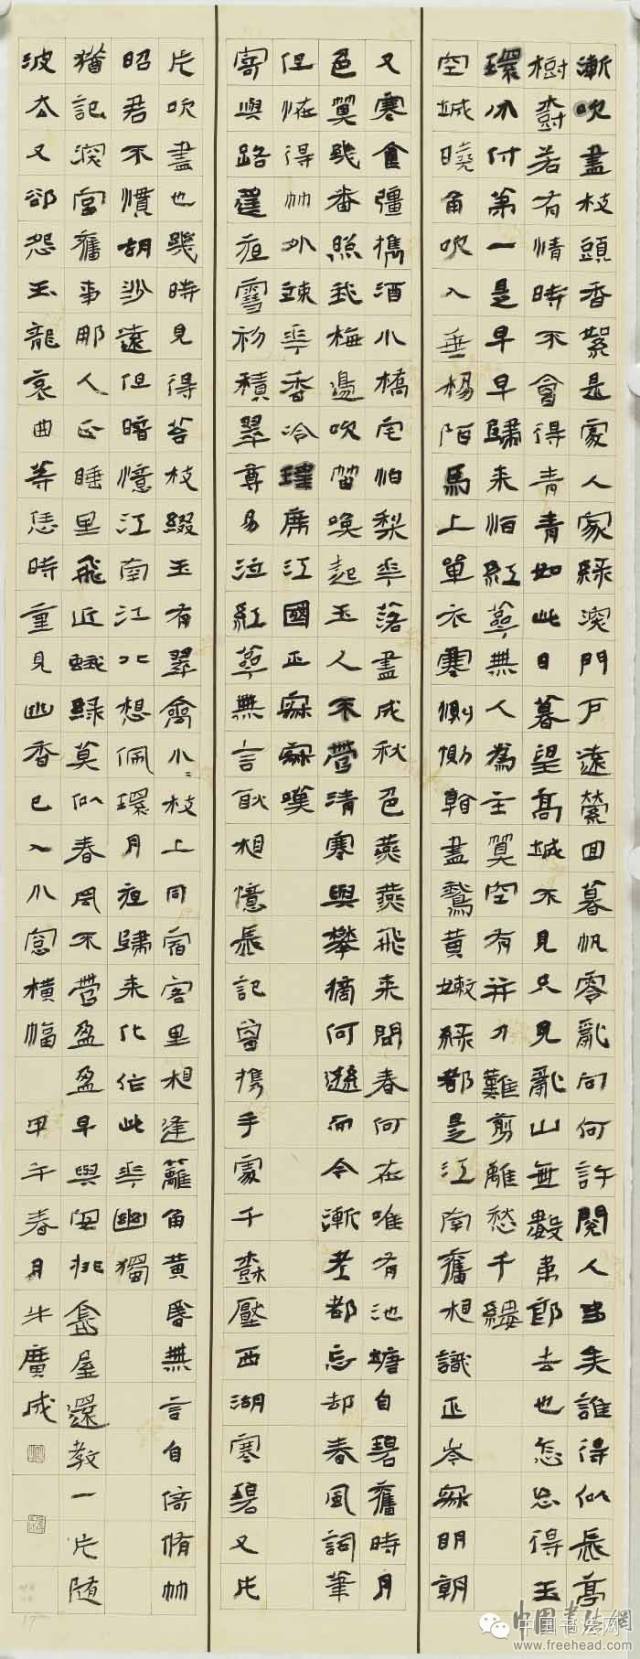 漸吹盡枝頭香絮是處人家綠深門戶遠縈回暮帆零亂向何許閱人多矣誰得似長亭
樹樹若有情時不會得青青如此日暮望高城不見只見亂山無數韋郎去也怎忘得玉
環分付第一是早早歸來怕紅萼無人為主算空有并刀難剪離愁千縷
空城曉角吹入垂楊陌馬上單衣寒惻惻看盡鵞黃嫩綠都是江南舊相識正岑寂明朝
又寒食彊攜酒小橋宅怕梨花落盡成秋色燕燕飛來問春何在唯有池塘自碧舊時月
色算幾番照我梅邊吹笛喚起玉人不管清寒與攀摘何遜而今漸老都忘却春風詞筆
但怪得竹外疎花香冷瑤席江國正寂寂嘆
寄與路遙夜雪初積翠尊易泣紅萼無言耿相憶長記曾攜手處千樹壓西湖寒碧又片
片吹盡也幾時見得苔枝綴玉有翠禽小小枝上同宿客里相逢籬角黃昏無言自倚脩竹
昭君不慣胡沙遠但暗憶江南江北想佩環月夜歸來化作此花幽獨
猶記深宮舊事那人正睡里飛近蛾綠莫似春風不管盈盈早與安排金屋還教一片隨
波去又卻怨玉龍哀曲等恁時重見幽香已入小窗橫幅 甲午春月牛廣成
中国书法网
www.freehead.com